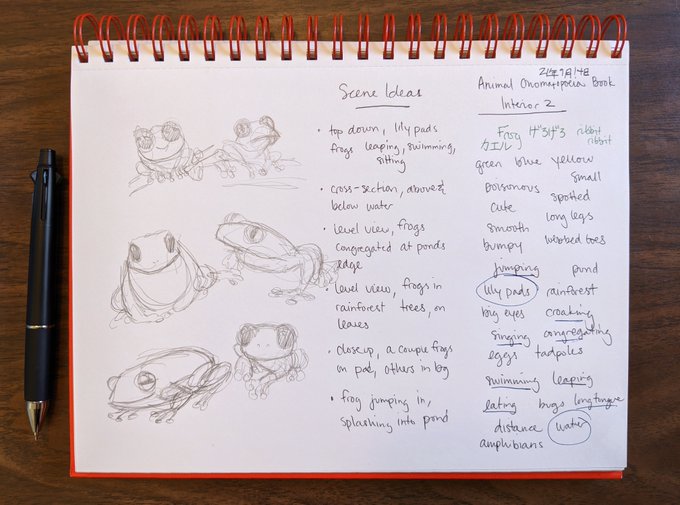 Scene Ideas
• top down, lily pads
frogs leaping, swimming,
sitting
• cross-section, above &
below water
• level view, frogs
congregated at ponds
edge
• level view, frogs in
rainforest trees, on
leaves
• close up, a couple frogs
on pad, others in bg
• frog jumping in,
splashing into pond
21年9月14日
Animal Onomatopoeia Book
Interior 2
Frog げろげろ ribbit
カエル ribbit
green blue yellow
small
poisonous spotted
cute
long legs
smooth
webbed toes
bumpy
jumping pond
lily pads rainforest
big eyes croaking
singing congregating
eggs tadpoles
swimming leaping
eating bugs long tongue
distance water
amphibians